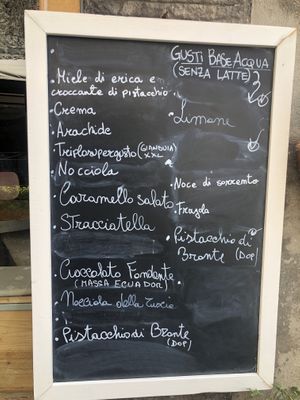 GUSTI BASE ACQUA
(SENZA LATTE)
. Miele di erica e
croccante di pistacchio.
. Crema
. Arachide
. Triplosupergusto (GIANDUIA XXL)
. Nocciola
. Caramello salato
. Stracciatella
. Cioccolato Fondente.
(MASSA ECUADOR)
. Nocciola della Tuscia
. Pistacchio di Bronte
(DOP)
. Limone
. Noce di sorrento
. Fragola
. Pistacchio di
Bronte (DOP)